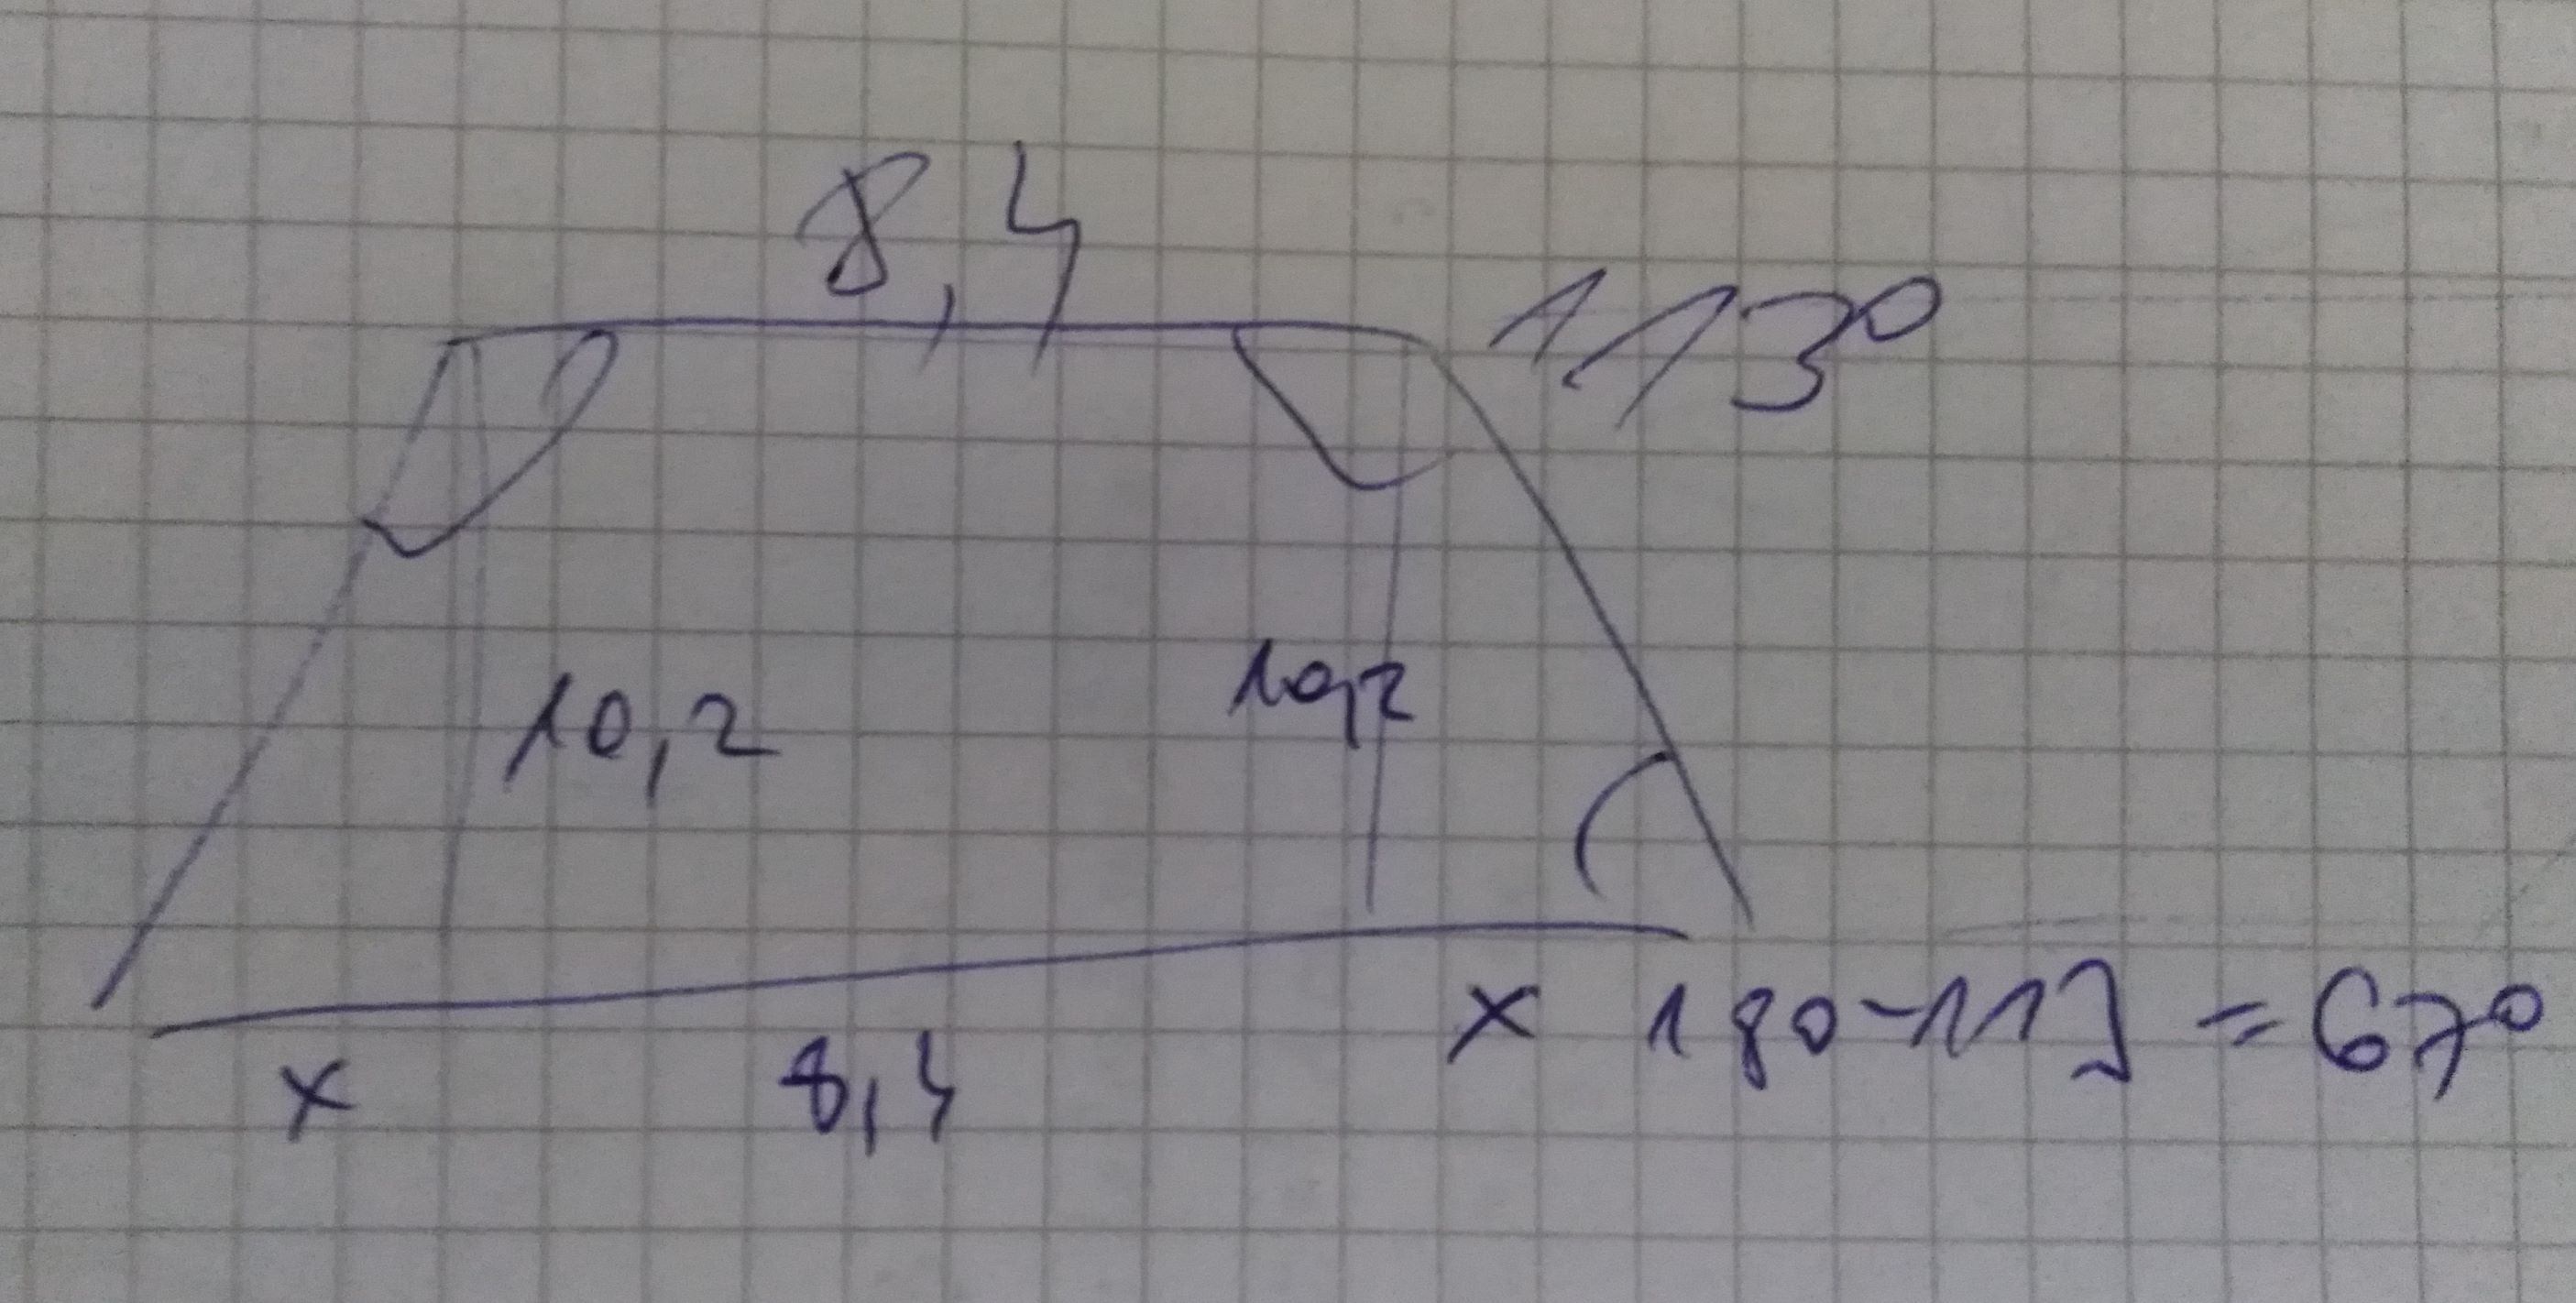 8,4
113°
10,2
10,2
x 180-113 = 67°
x 8,4